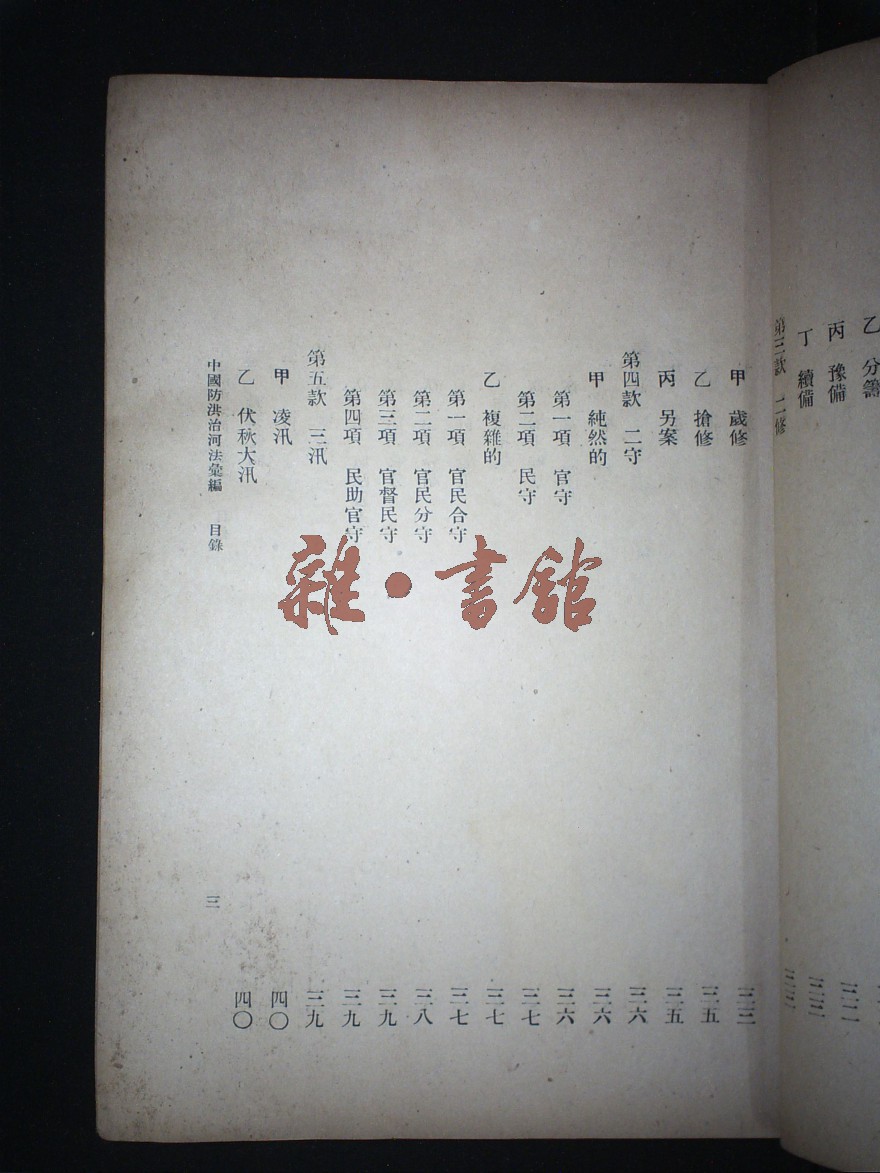 乙 分籌
丙 豫備
丁 續備
第三款 二修
甲 歲修 三三
乙 搶修 三五
丙 另案 三五
第四款 二守 三六
甲 純然的 三六
第一項 官守 三六
第二項 民守 三七
乙 複雜的 三七
第一項 官民合守 三七
第二項 官民分守 三八
第三項 官督民守 三九
第四項 民助官守 三九
第五款 三汛 三九
甲 凌汛 四〇
乙 伏秋大汛 四〇
中國防洪治河法彙編 目錄 三
雜·書館